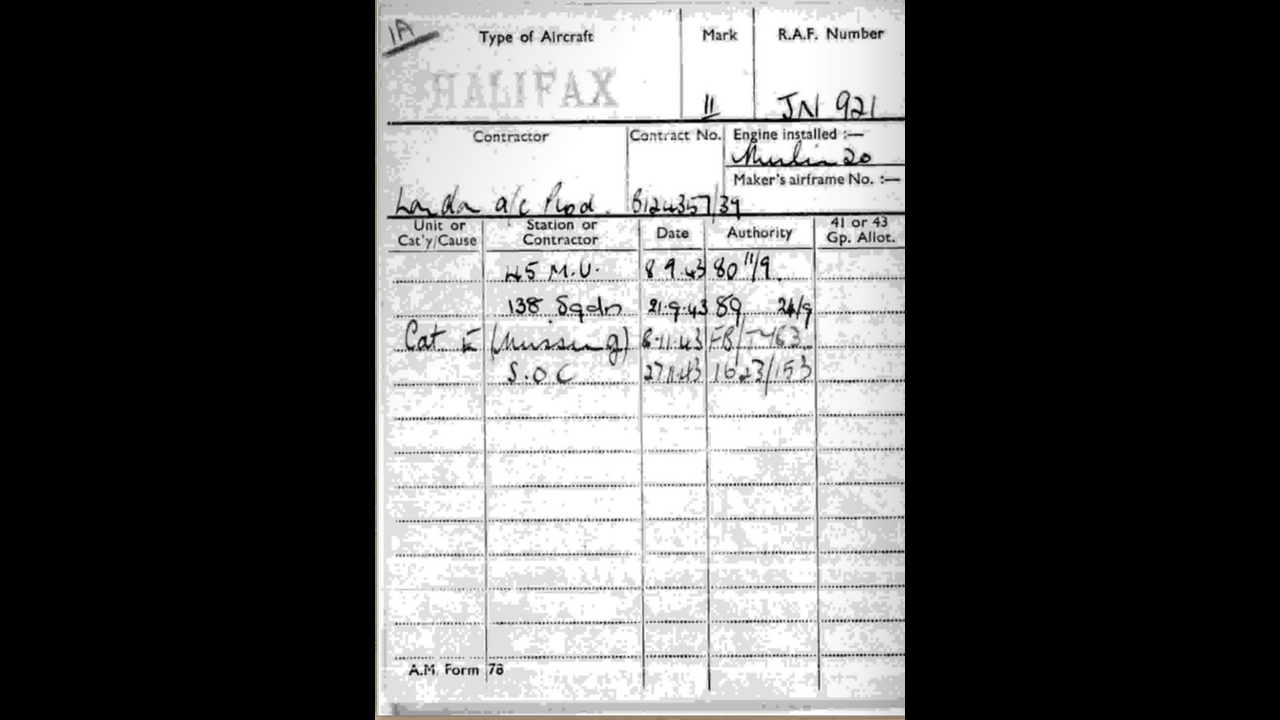 1A
Type of Aircraft Mark R.A.F. Number
HALIFAX 11 JN 921
Contractor Contract No. Engine installed :—
Merlin 20
Maker's airframe No. :—
London a/c Prod. B124357/39
Unit or Cat'y/Cause Station or Contractor Date Authority 41 or 43 Gp. Allot.
45 M.U. 8 9.43 80 11/9.
138 Sqdn 21.9.43 89 24/9
Cat E (Missing) 8-11.43 FB/
S.O.C 27.11.43 1623/153
A.M. Form 78